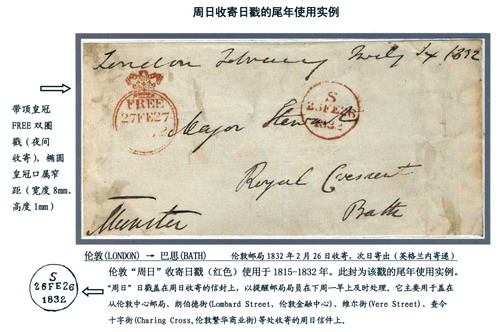 周日收寄日戳的尾年使用实例
London February 1832
FREE
27FE27
S
26FE26
1832
Major
Royal Crescent
Bath
Munster
带顶皇冠
FREE 双圈
戳(夜间
收寄), 椭圆
皇冠口属窄
距(宽度8mm、
高度1mm)
伦敦(LONDON) → 巴思(BATH) 伦敦邮局1832年2月26日收寄, 次日寄出(英格兰内寄递)
伦敦“周日”收寄日戳(红色)使用于1815-1832年。此封为该戳的尾年使用实例。
“周日”日戳盖在周日收寄的信封上, 以提醒邮局局员在下周一早上及时处理。它主要用于盖在
从伦敦中心邮局、朗伯德街(Lombard Street, 伦敦金融中心)、维尔街(Vere Street)、查令
十字街(Charing Cross,伦敦繁华商业街)等处收寄的周日信件上。
S
26FE26
1832